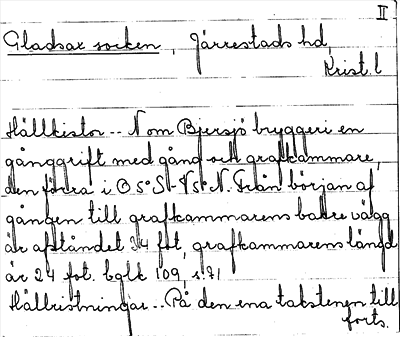 II
Gladsax socken, Järrestads hd,
Krist. l
Hällkistor -- N om Bjersjö bryggeri en
gånggrift med gång och grafkammare,
den förra i O 5° S - V 5° N. Från början af
gången till grafkammarens bakre vägg
är afståndet 34 fot, grafkammarens längd
är 24 fot. 109, s. 71
Hällristningar -- På den ena takstenen till
forts.